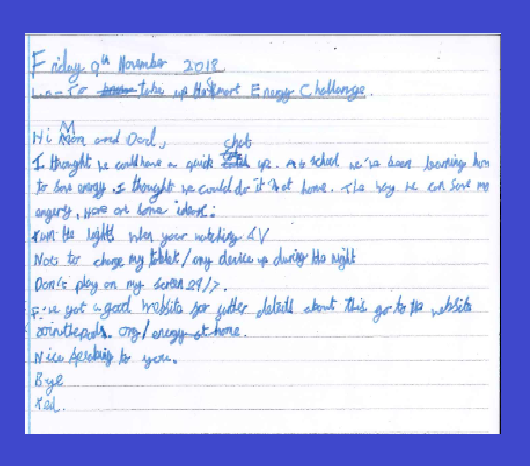 Friday 9th November 2018
L.O - To take up Hallmart Energy Challenge.
Hi Mom and Dad,
chat
I thought we could have a quick up. At school we've been learning how
to save energy I thought we could do it at home. The way we can save my
engery, Here are some ideas:
turn the lights when your watching TV
Not to charge my tablet/any device up during the night
Don't play on my screen 24/7.
I've got a good website for futher details about this go to the website
. org/energy-at-home.
Nice speaking to you.
Bye